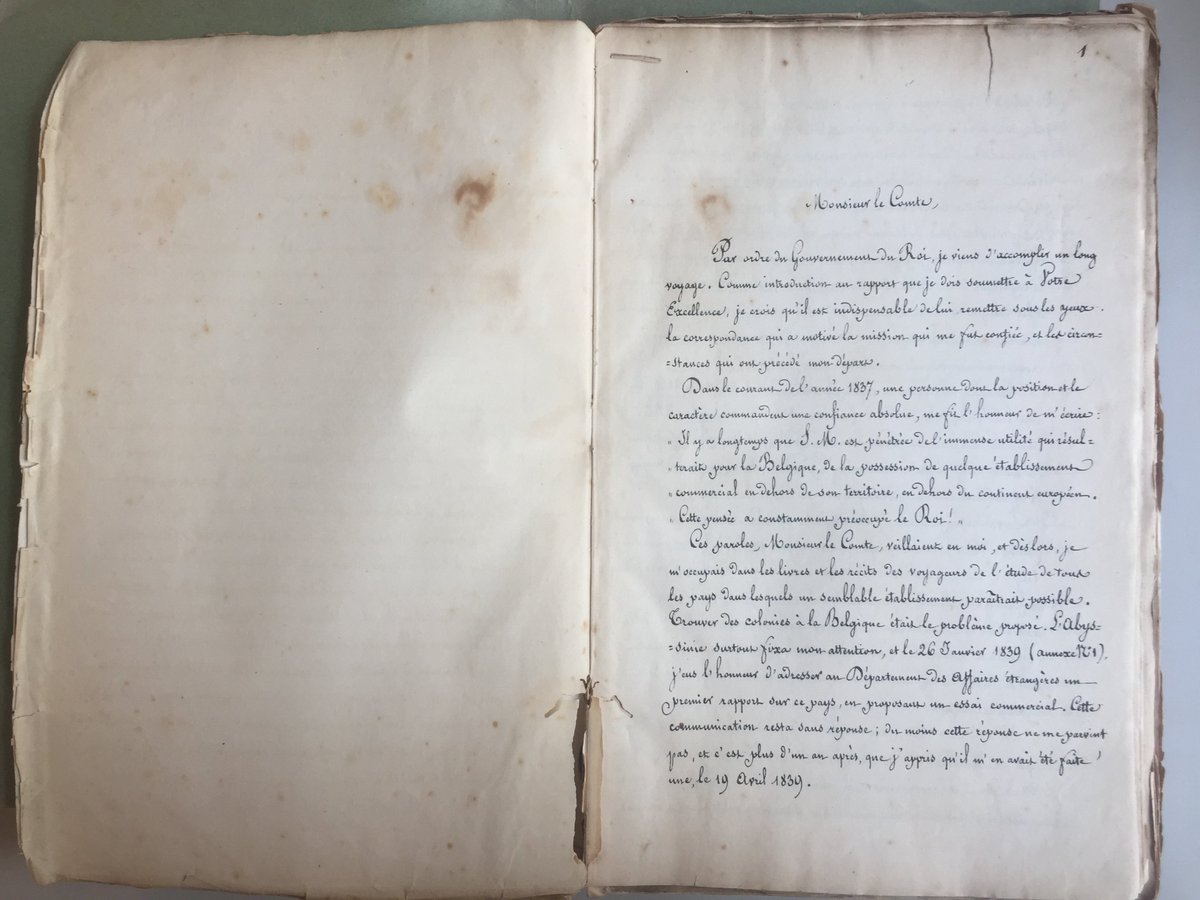 1
Monsieur le Comte,
Par ordre du Gouvernement du Roi, je viens d'accomplir un long
voyage. Comme introduction au rapport que je dois soumettre à Votre
Excellence, je crois qu'il est indispensable de lui remettre sous les yeux
la correspondance qui a motivé la mission qui me fut confiée, et les circon-
=stances qui ont précédé mon départ.
Dans le courant de l'année 1837, une personne dont la position et le
caractère commandent une confiance absolue, me fit l'honneur de m'écrire :
" Il y a longtemps que S. M. est pénétrée de l'immense utilité qui résul=
" terait pour la Belgique, de la possession de quelque établissement
" commercial en dehors de son territoire, en dehors du continent européen.
" Cette pensée a constamment préoccupé le Roi! "
Ces paroles, Monsieur le Comte, veillaient en moi, et dès lors, je
m'occupais dans les livres et les récits des voyageurs de l'étude de tous
les pays dans lesquels un semblable établissement paraîtrait possible.
Trouver des colonies à la Belgique était le problème proposé. L'Abys=
=sinie surtout fixa mon attention, et le 26 Janvier 1839 (annexe N°1),
j'eus l'honneur d'adresser au Département des Affaires étrangères un
premier rapport sur ce pays, en proposant un essai commercial. Cette
communication resta sans réponse ; du moins cette réponse ne me parvint
pas, et c'est plus d'un an après, que j'appris qu'il m'en avait été faite
une, le 19 Avril 1839.